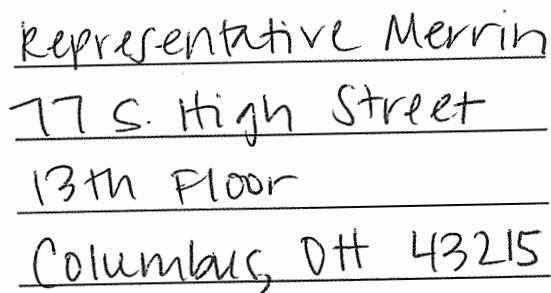 Representative Merrin
77 S. High Street
13th Floor
Columbus, OH 43215